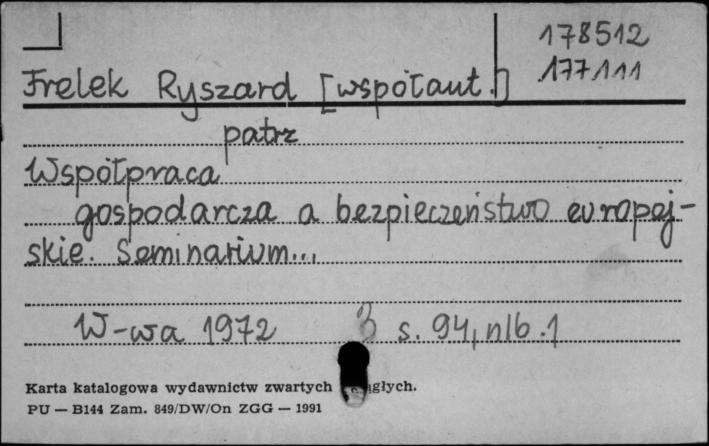 178512
177111
Frelek Ryszard [współaut.]
patrz
Współpraca
gospodarcza a bezpieczeństwo europej-
skie. Seminarium...
W-wa 1972 s. 94, nlb. 1
Karta katalogowa wydawnictw zwartych
PU — B144 Zam. 849/DW/On ZGG — 1991